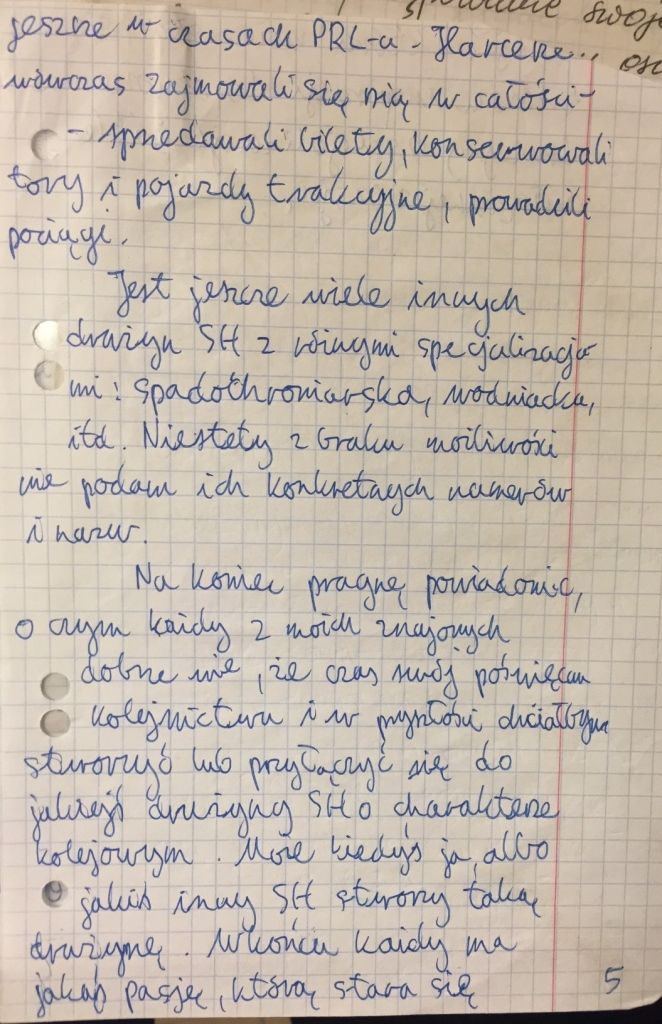 swoje
jeszcze w czasach PRL-u. Harcerze
wówczas zajmowali się nią w całości -
- sprzedawali bilety, konserwowali
tory i pojazdy trakcyjne, prowadzili
pociągi.
Jest jeszcze wiele innych
drużyn SH z różnymi specjalizacja-
mi: spadochroniarska, wodniacka,
itd. Niestety z braku możliwości
nie podam ich konkretnych numerów
i nazw.
Na koniec pragnę powiadomić,
o czym każdy z moich znajomych
dobrze wie, że czas swój poświęcam
kolejnictwu i w przyszłości chciałbym
stworzyć lub przyłączyć się do
jakiejś drużyny SH o charakterze
kolejowym. Może kiedyś ja, albo
jakiś inny SH stworzy taką
drużynę. W końcu każdy ma
jakąś pasję, którą stara się
5